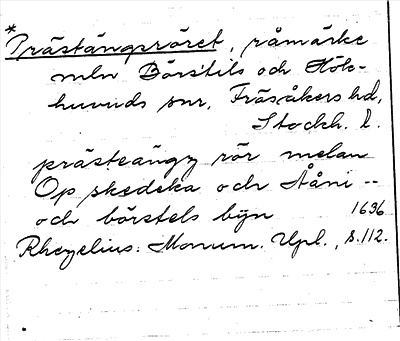 *Prästängsröret, råmärke
mln Börstils och Hök-
huvuds snr, Frösåkers hd,
Stockh. l.
prästeängz rör melan
Op skedeka och Ååni --
och börstels byn 1696
Rhezelius: Monum. Upl., s. 112.